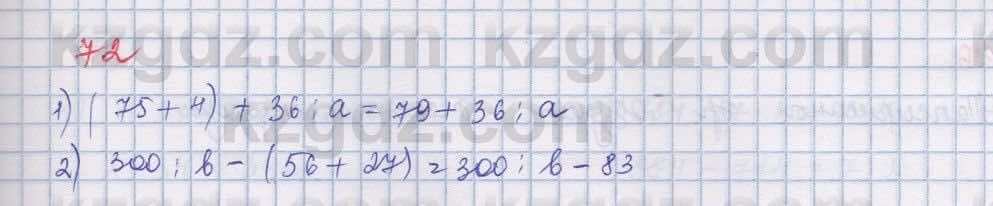 kzgdz.com kzgdz.com
72
1) (75 + 4) + 36 : a = 79 + 36 : a
kzgdz.com
2) 300 : b - (56 + 27) = 300 : b - 83